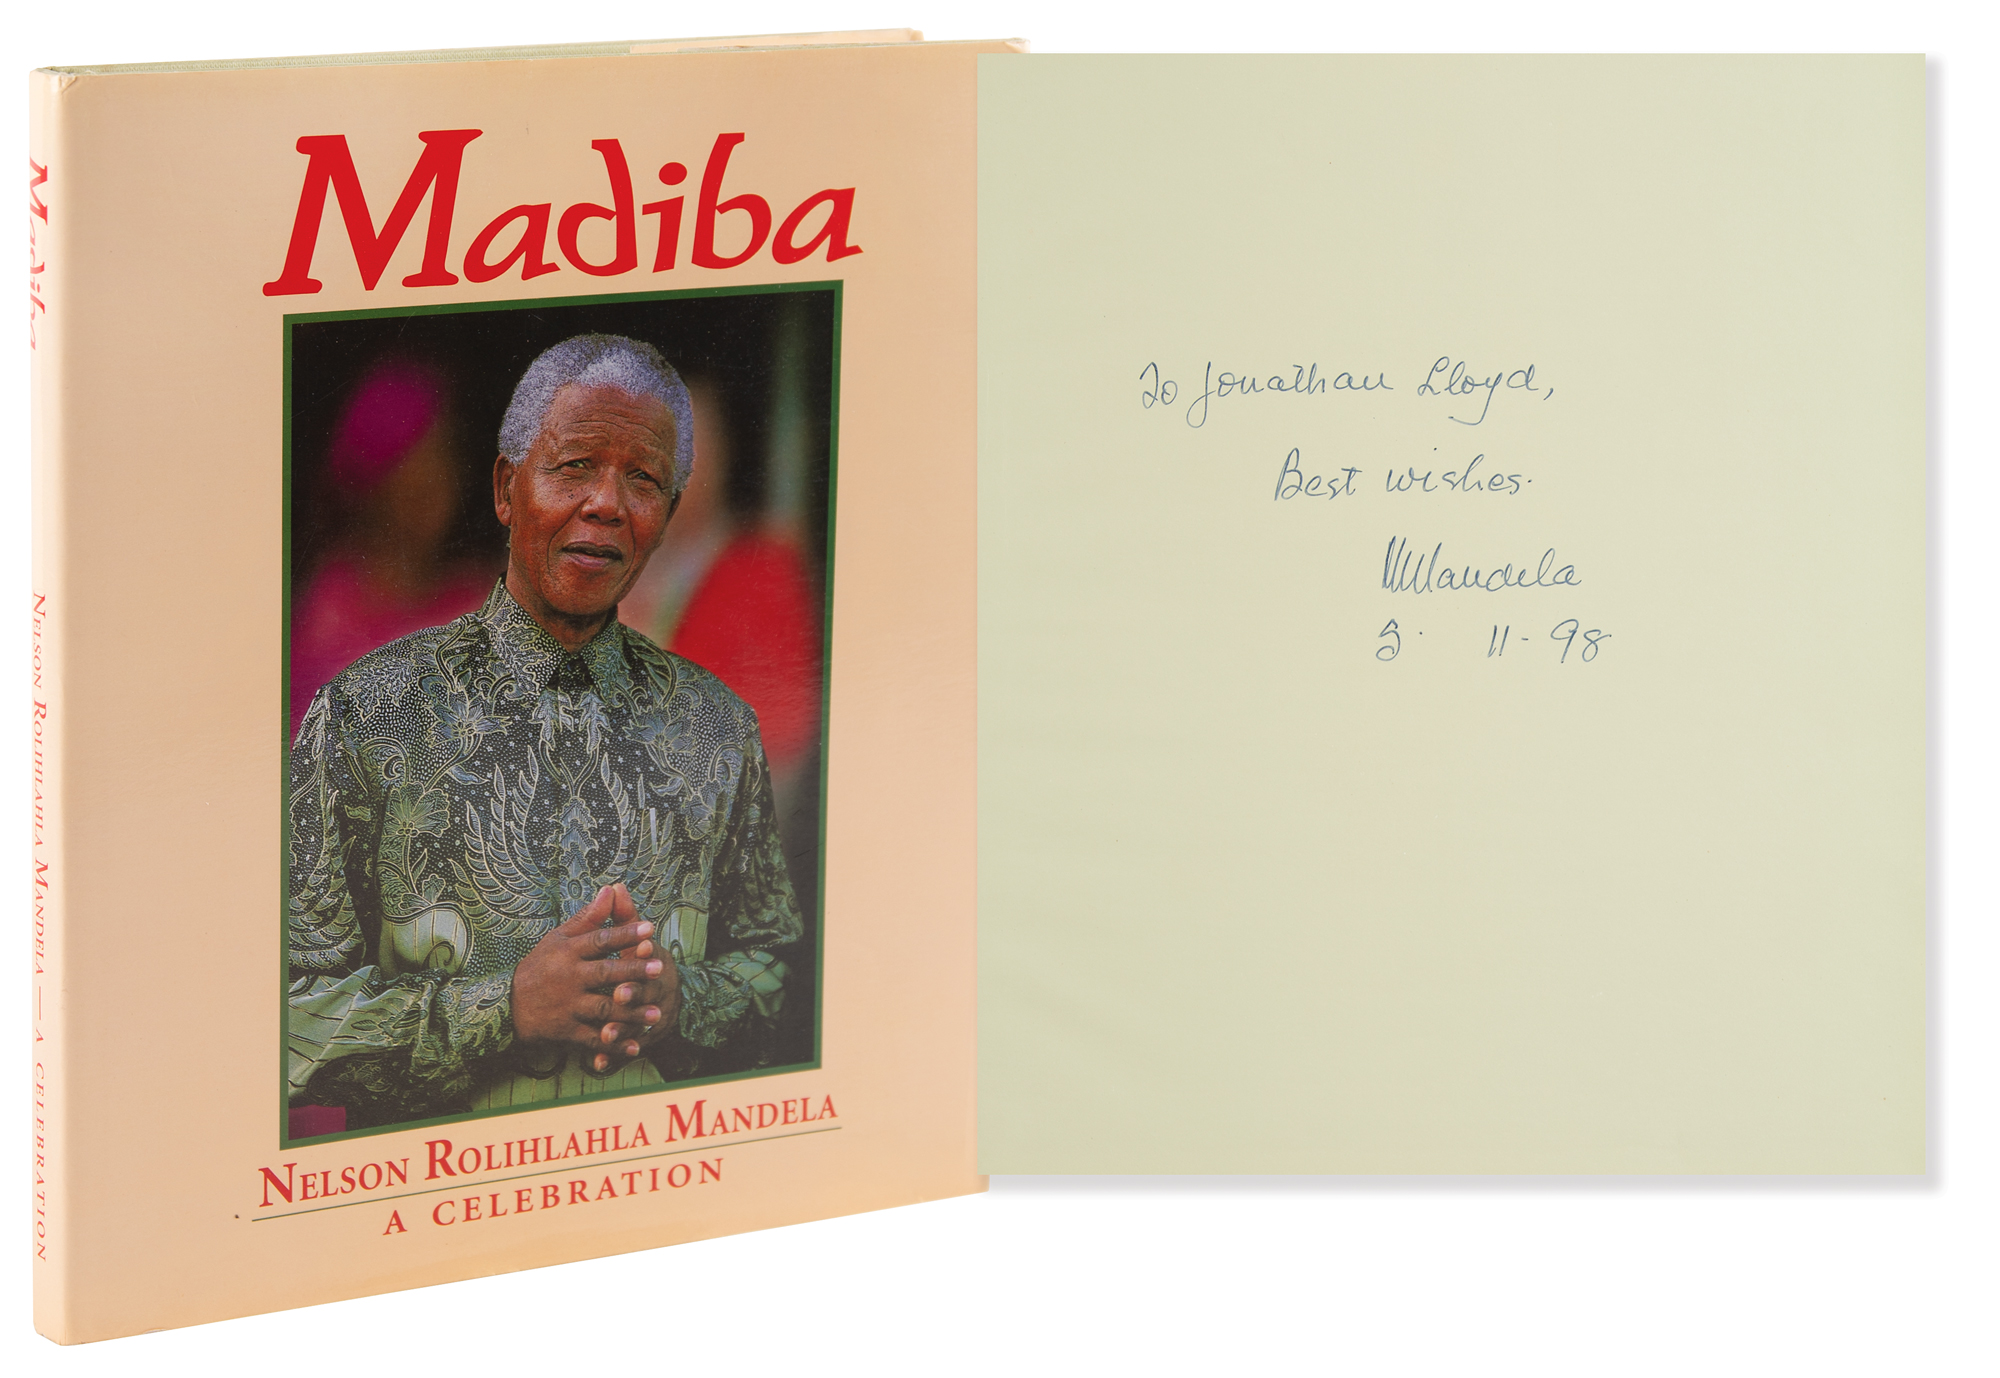 Madiba
NELSON ROLIHLAHLA MANDELA — A CELEBRATION
Madiba
NELSON ROLIHLAHLA MANDELA
A CELEBRATION
To Jonathan Lloyd,
Best wishes.
NMandela
5· 11-98